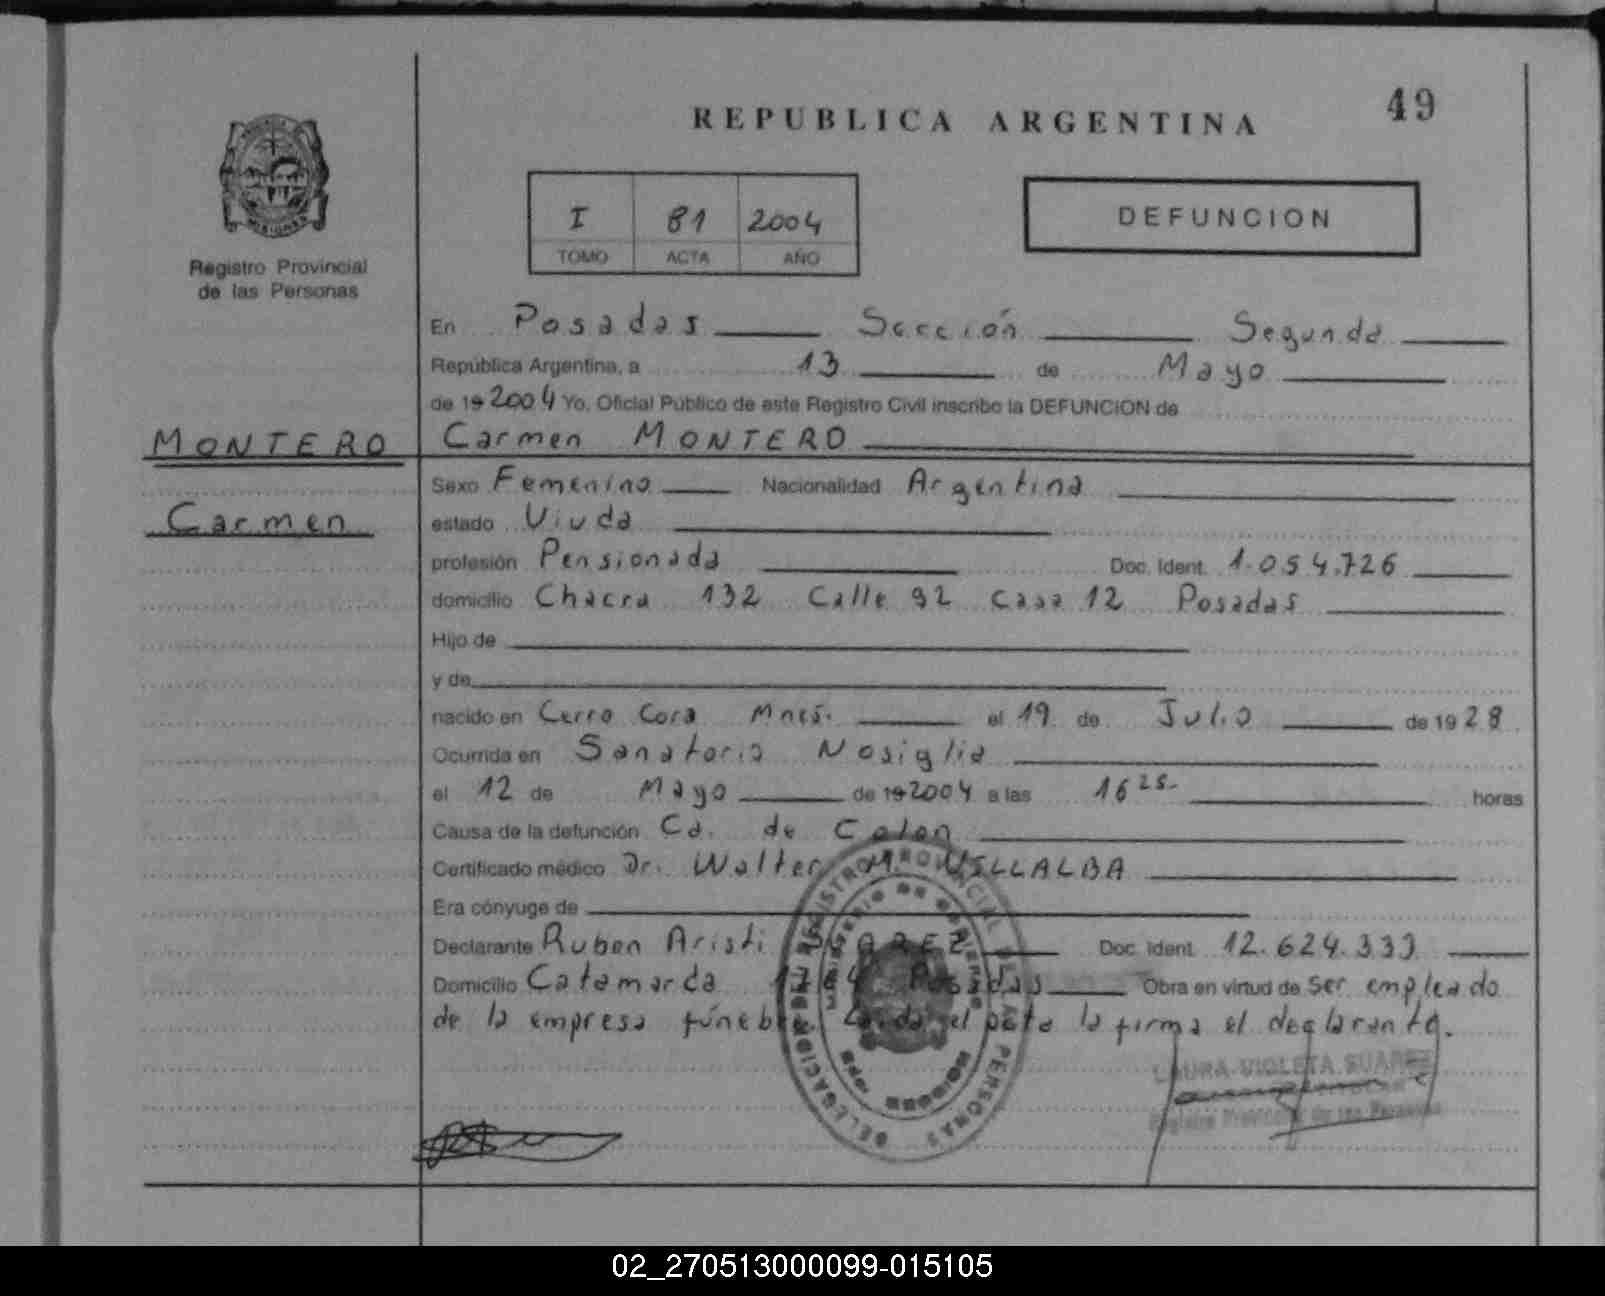 49
REPUBLICA ARGENTINA
I 81 2004
TOMO ACTA AÑO
DEFUNCION
Registro Provincial
de las Personas
En Posadas Sección Segunda
República Argentina, a 13 de Mayo
de 19 2004 Yo, Oficial Público de este Registro Civil inscribo la DEFUNCION de
MONTERO Carmen MONTERO
Sexo Femenino Nacionalidad Argentina
Carmen estado Viuda
profesión Pensionada Doc. Ident. 1.054.726
domicilio Chacra 132 Calle 92 Casa 12 Posadas
Hijo de
y de
nacido en Cerro Cora Mnes. el 19 de Julio de 19 28
Ocurrida en Sanatorio Nosiglia
el 12 de Mayo de 19 2004 a las 16 25- horas
Causa de la defunción Ca. de Colon
Certificado médico Dr. Walter M. VILLALBA
Era cónyuge de
Declarante Ruben Aristi Doc. Ident. 12.624.333
Domicilio Catamarca Posadas Obra en virtud de ser empleado
de la empresa fúnebre. el acta la firma el declarante.
LAURA VIOLETA SUAREZ
Registro Provincial de las Personas
REGISTRO PROVINCIAL DE LAS PERSONAS DELEGACION
MINISTERIO DE GOBIERNO
MISIONES
02_270513000099-015105